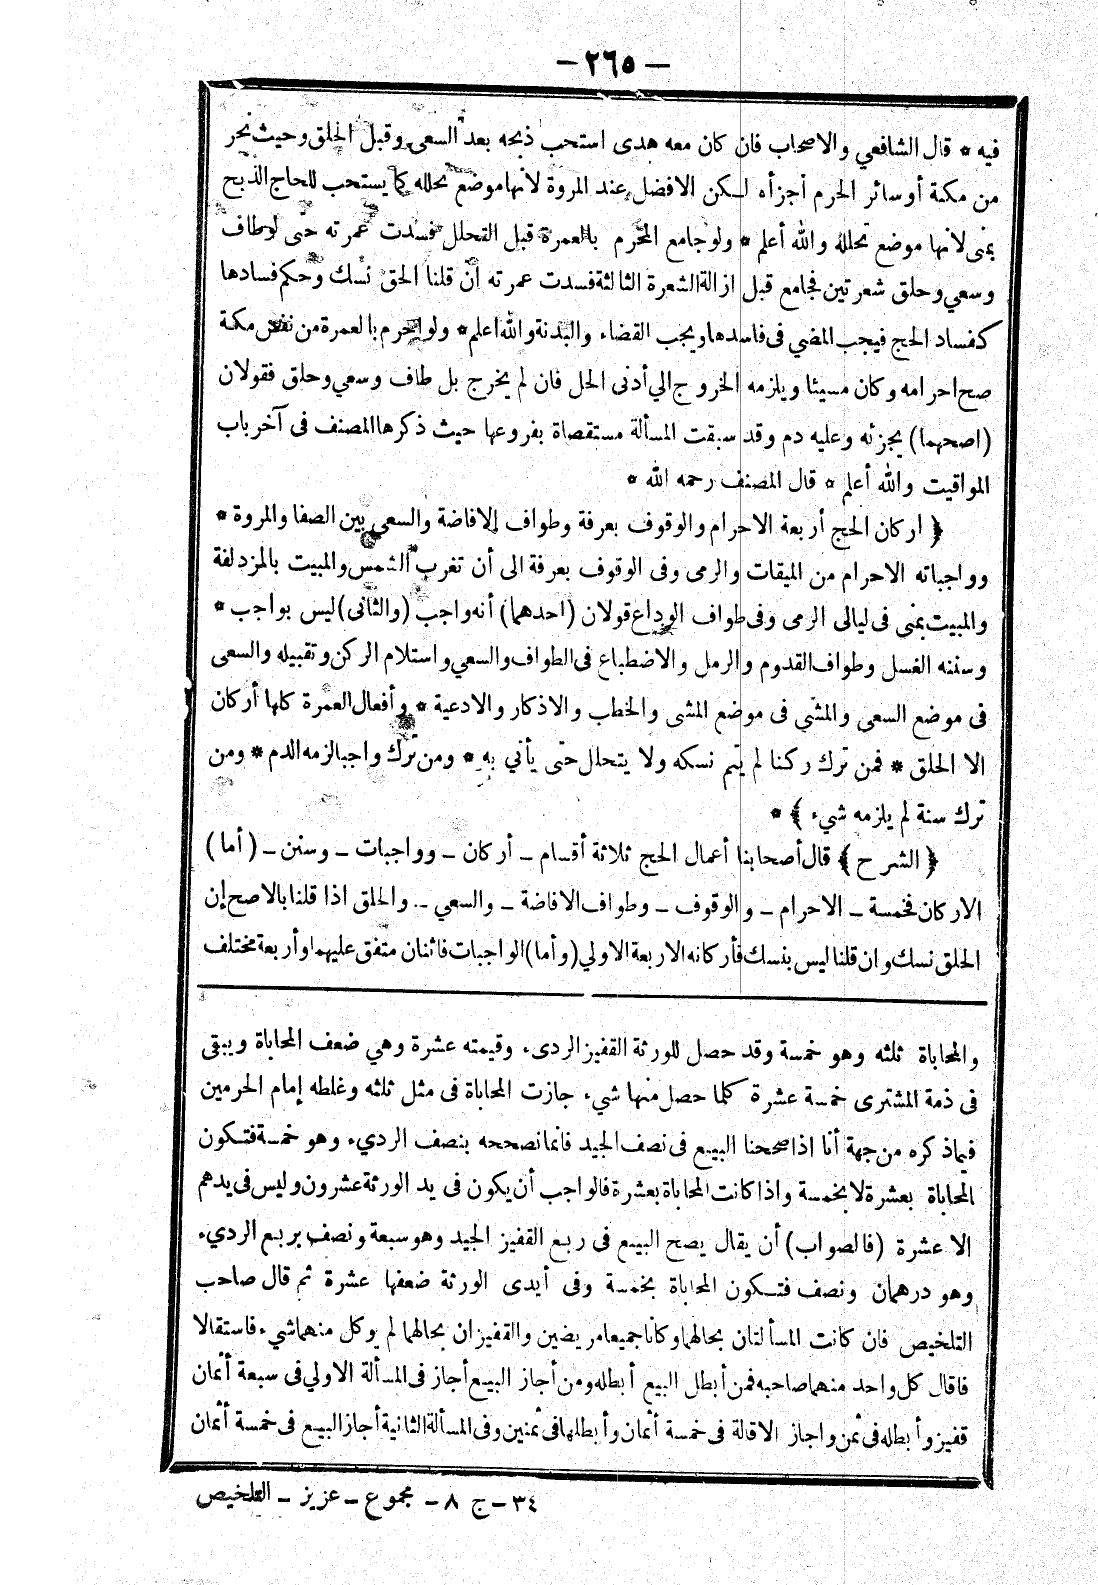 — ٢٦٥ —
فيه * قال الشافعي والاصحاب فان كان معه هدى استحب ذبحه بعد السعي وقبل الحلق وحيث نحر
من مكة أو سائر الحرم أجزأه لـكن الافضل عند المروة لانها موضع تحلله كما يستحب للحاج الذبح
بمنى لانها موضع تحلله والله أعلم * ولو جامع المحرم بالعمرة قبل التحلل فسدت عمرته حتى لو طاف
وسعي وحلق شعرتين فجامع قبل ازالة الشعرة الثالثة فسدت عمرته ان قلنا الحق نسك وحكم فسادها
كفساد الحج فيجب المضي فى فاسدها ويجب القضاء والبدنة والله أعلم * ولو احرم بالعمرة من نفس مكة
صح احرامه وكان مسيئا ويلزمه الخروج الي أدنى الحل فان لم يخرج بل طاف وسعي وحلق فقولان
(اصحهما) يجزئه وعليه دم وقد سبقت المسألة مستقصاة بفروعها حيث ذكرها المصنف فى آخر باب
المواقيت والله أعلم * قال المصنف رحمه الله *
﴿ أركان الحج أربعة الاحرام والوقوف بعرفة وطواف الافاضة والسعي بين الصفا والمروة *
وواجباته الاحرام من الميقات والرمى وفى الوقوف بعرفة الى أن تغرب الشمس والمبيت بالمزدلفة
والمبيت بمنى فى ليالى الرمى وفى طواف الوداع قولان (احدهما) أنه واجب (والثانى) ليس بواجب *
وسننه الغسل وطواف القدوم والرمل والاضطباع فى الطواف والسعي واستلام الركن وتقبيله والسعى
فى موضع السعى والمشى فى موضع المشى والخطب والاذكار والادعية * وأفعال العمرة كلها أركان
الا الحلق * فمن ترك ركنا لم يتم نسكه ولا يتحلل حتى يأتي به * ومن ترك واجبا لزمه الدم * ومن
ترك سنة لم يلزمه شيء ﴾ *
﴿ الشرح ﴾ قال أصحابنا أعمال الحج ثلاثة أقسام ـ أركان ـ وواجبات ـ وسنن ـ (أما)
الاركان فخمسة ـ الاحرام ـ والوقوف ـ وطواف الافاضة ـ والسعي ـ والحلق اذا قلنا بالاصح إن
الحلق نسك وان قلنا ليس بنسك فأركانه الاربعة الاولي (وأما) الواجبات فاثنان متفق عليهما وأربعة مختلف
والمحاباة ثلثه وهو خمسة وقد حصل للورثة القفيز الردىء وقيمته عشرة وهي ضعف المحاباة ويبقى
فى ذمة المشترى خمسة عشرة كلما حصل منها شيء جازت المحاباة فى مثل ثلثه وغلطه إمام الحرمين
فيما ذكره من جهة أنا اذا صححنا البيع فى نصف الجيد فانما نصححه بنصف الرديء وهو خمسة فتكون
المحاباة بعشرة لا بخمسة واذا كانت المحاباة بعشرة فالواجب أن يكون فى يد الورثة عشرون وليس فى يدهم
الا عشرة (فالصواب) أن يقال يصح البيع فى ربع القفيز الجيد وهو سبعة ونصف بربع الرديء
وهو درهمان ونصف فتكون المحاباة بخمسة وفى أيدى الورثة ضعفها عشرة ثم قال صاحب
التلخيص فان كانت المسألتان بحالهما وكانا جميعا مريضين والقفيزان بحالهما لم يوكل منهما شيء فاستقالا
فاقال كل واحد منهما صاحبه فمن أبطل البيع أبطله ومن أجاز البيع أجاز فى المسألة الاولي فى سبعة أثمان
قفيز وأبطله فى ثمن واجاز الاقالة فى خمسة أثمان وأبطلها فى ثمنين وفى المسألة الثانية أجاز البيع فى خمسة أثمان
٣٤ – ج ٨ – مجموع – عزيز – التلخيص